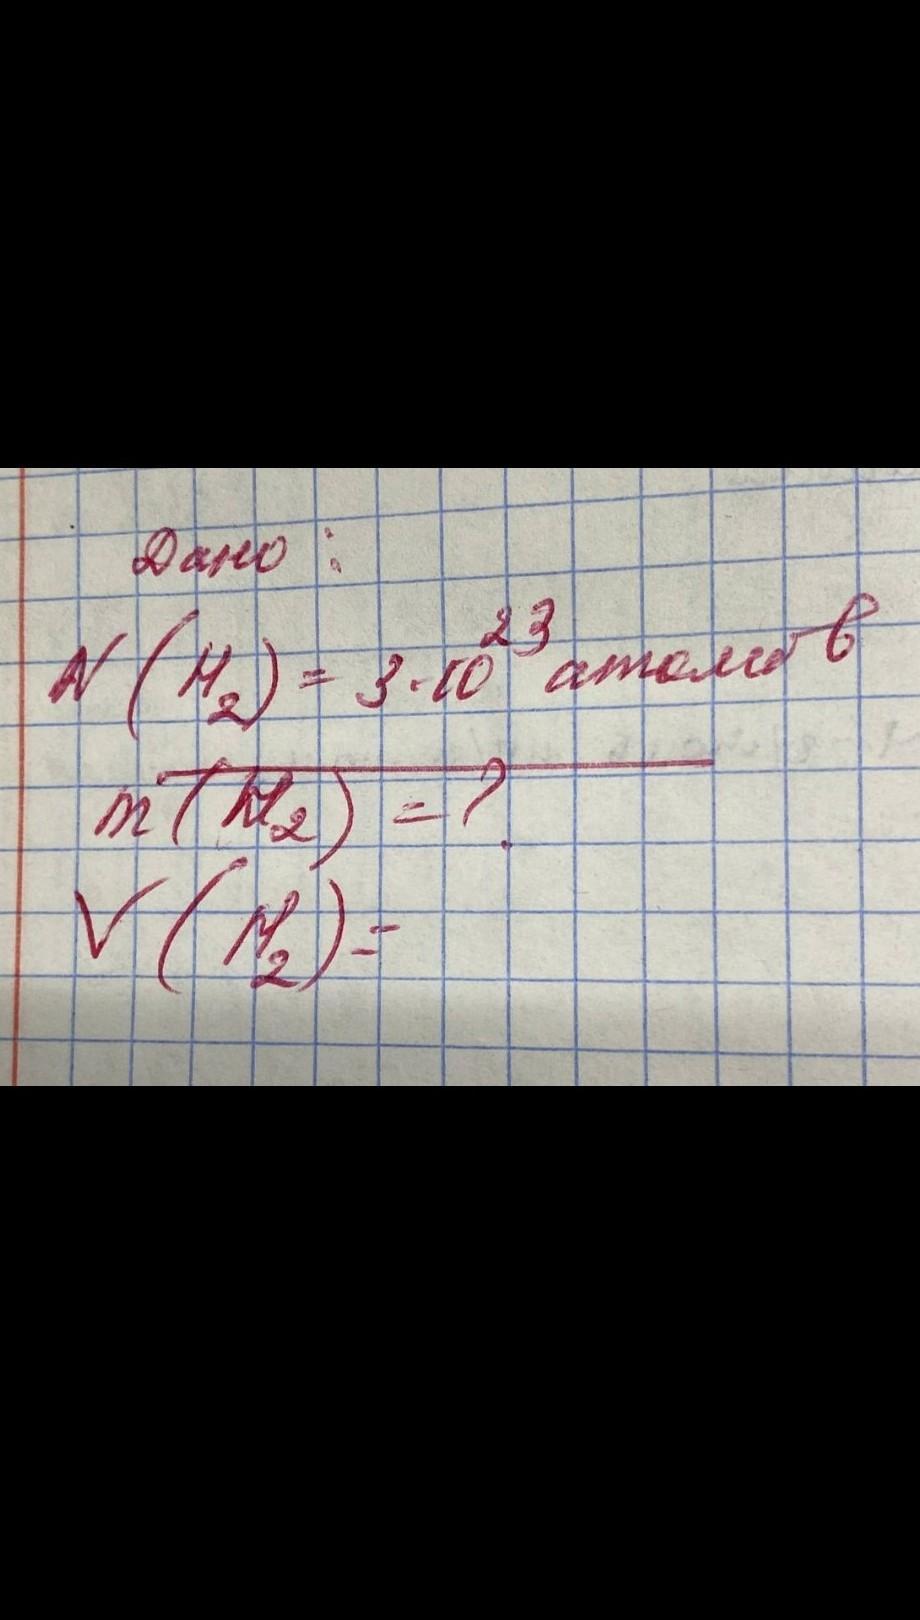 Дано:
N(H₂) = 3·10²³ атомов
m(H₂) = ?
V(H₂) =